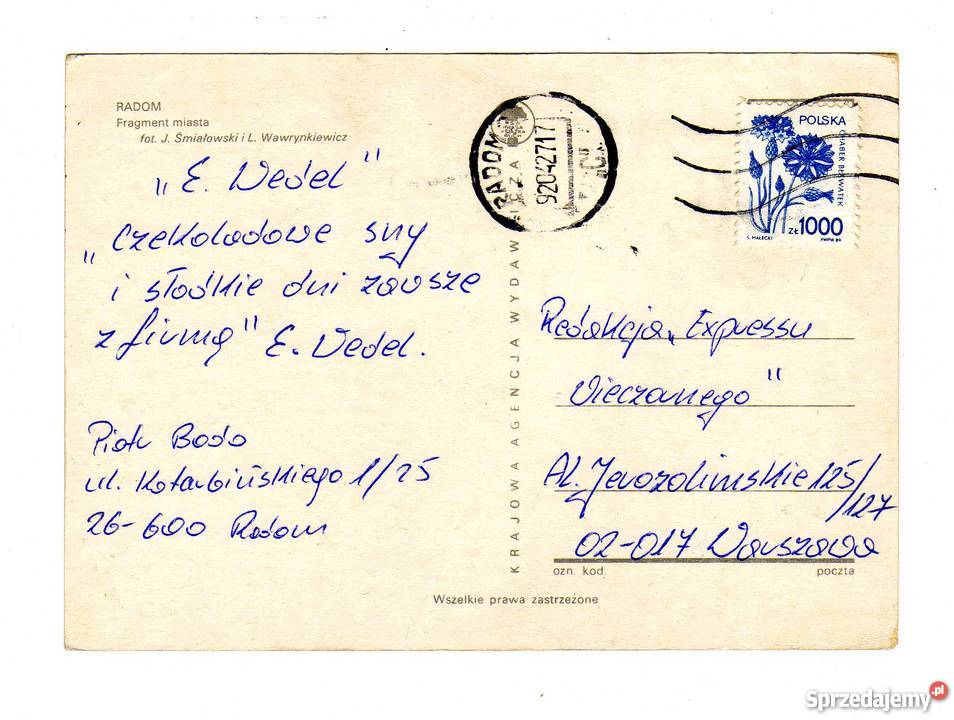 RADOM
Fragment miasta
fot. J. Śmiałowski i L. Wawrynkiewicz
„E. Wedel"
„Czekoladowe sny
i słodkie dni zawsze
z firmą" E. Wedel.
Piotr Bodo
ul. Kotarbińskiego 1/25
26-600 Radom
KRAJOWA AGENCJA WYDAWNICZA
RADOM
92042717
POLSKA
CHABER BŁAWATEK
ZŁ 1000
S. MAŁECKI
PWPW 89
Redakcja „Expressu
Wieczornego"
Al. Jerozolimskie 125/
/127
02-017 Warszawa
ozn. kod.
poczta
Wszelkie prawa zastrzeżone
Sprzedajemy.pl